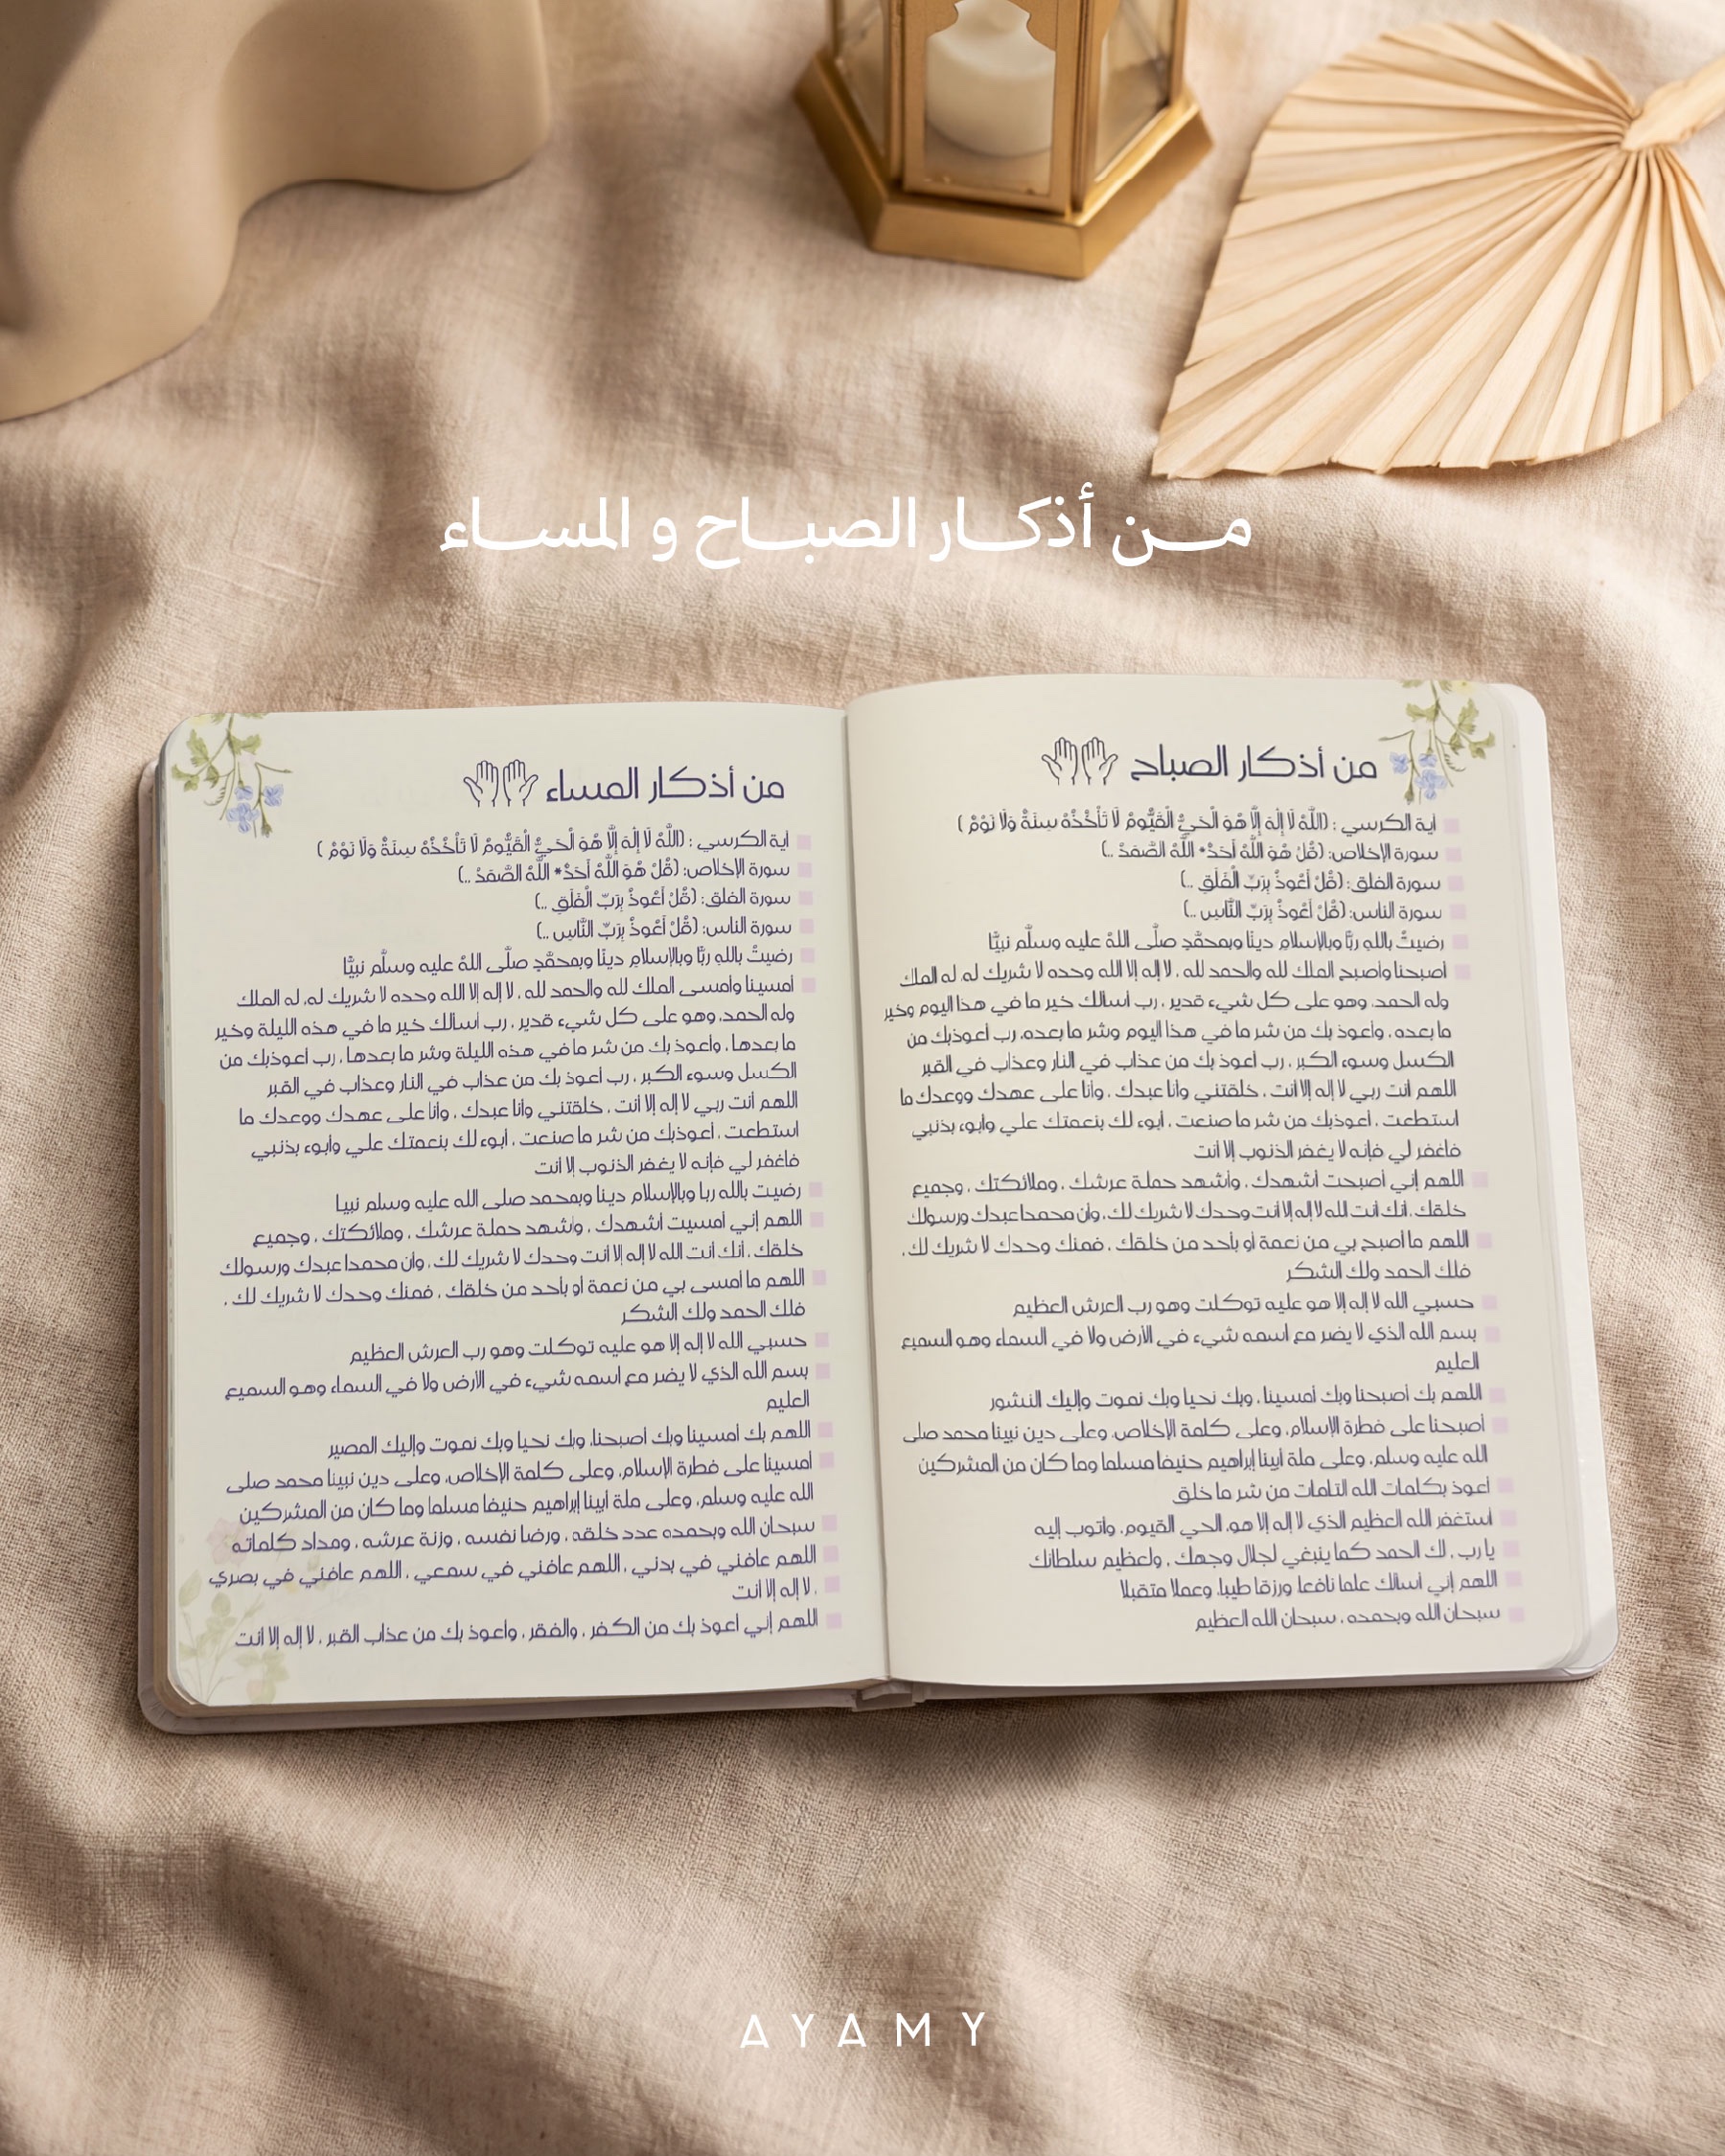 مـــن أذكـــار الصبـــاح و المســـاء
من أذكار الصباح
آية الكرسي : (اللَّهُ لَا إِلَهَ إِلَّا هُوَ الْحَيُّ الْقَيُّومُ لَا تَأْخُذُهُ سِنَةٌ وَلَا نَوْمٌ )
سورة الإخلاص: (قُلْ هُوَ اللَّهُ أَحَدٌ* اللَّهُ الصَّمَدُ ..)
سورة الفلق: (قُلْ أَعُوذُ بِرَبِّ الْفَلَقِ ..)
سورة الناس: (قُلْ أَعُوذُ بِرَبِّ النَّاسِ ..)
رضيتُ باللهِ ربًّا وبالإسلامِ دينًا وبمحمَّدٍ صلَّى اللهُ عليه وسلَّم نبيًّا
أصبحنا وأصبح الملك لله والحمد لله ، لا إله إلا الله وحده لا شريك له، له الملك
وله الحمد، وهو على كل شيء قدير ، رب أسالك خير ما في هذا اليوم وخير
ما بعده ، وأعوذ بك من شر ما في هذا اليوم وشر ما بعده، رب أعوذبك من
الكسل وسوء الكبر ، رب أعوذ بك من عذاب في النار وعذاب في القبر
اللهم أنت ربي لا إله إلا أنت ، خلقتني وأنا عبدك ، وأنا على عهدك ووعدك ما
استطعت ، أعوذبك من شر ما صنعت ، أبوء لك بنعمتك علي وأبوء بذنبي
فاغفر لي فإنه لا يغفر الذنوب إلا أنت
اللهم إني أصبحت أشهدك ، وأشهد حملة عرشك ، وملائكتك ، وجميع
خلقك ، أنك أنت الله لا إله إلا أنت وحدك لا شريك لك، وأن محمدا عبدك ورسولك
اللهم ما أصبح بي من نعمة أو بأحد من خلقك ، فمنك وحدك لا شريك لك ،
فلك الحمد ولك الشكر
حسبي الله لا إله إلا هو عليه توكلت وهو رب العرش العظيم
بسم الله الذي لا يضر مع اسمه شيء في الأرض ولا في السماء وهو السميع
العليم
اللهم بك أصبحنا وبك أمسينا ، وبك نحيا وبك نموت وإليك النشور
أصبحنا على فطرة الإسلام، وعلى كلمة الإخلاص، وعلى دين نبينا محمد صلى
الله عليه وسلم، وعلى ملة أبينا إبراهيم حنيفا مسلما وما كان من المشركين
أعوذ بكلمات الله التامات من شر ما خلق
أستغفر الله العظيم الذي لا إله إلا هو، الحي القيوم، وأتوب إليه
يا رب ، لك الحمد كما ينبغي لجلال وجهك ، ولعظيم سلطانك
اللهم إني أسالك علما نافعا، ورزقا طيبا، وعملا متقبلا
سبحان الله وبحمده ، سبحان الله العظيم
من أذكار المساء
آية الكرسي : (اللَّهُ لَا إِلَهَ إِلَّا هُوَ الْحَيُّ الْقَيُّومُ لَا تَأْخُذُهُ سِنَةٌ وَلَا نَوْمٌ )
سورة الإخلاص: (قُلْ هُوَ اللَّهُ أَحَدٌ* اللَّهُ الصَّمَدُ ..)
سورة الفلق: (قُلْ أَعُوذُ بِرَبِّ الْفَلَقِ ..)
سورة الناس: (قُلْ أَعُوذُ بِرَبِّ النَّاسِ ..)
رضيتُ باللهِ ربًّا وبالإسلامِ دينًا وبمحمَّدٍ صلَّى اللهُ عليه وسلَّم نبيًّا
أمسينا وأمسى الملك لله والحمد لله ، لا إله إلا الله وحده لا شريك له، له الملك
وله الحمد، وهو على كل شيء قدير ، رب أسالك خير ما في هذه الليلة وخير
ما بعدها ، وأعوذ بك من شر ما في هذه الليلة وشر ما بعدها ، رب أعوذبك من
الكسل وسوء الكبر ، رب أعوذ بك من عذاب في النار وعذاب في القبر
اللهم أنت ربي لا إله إلا أنت ، خلقتني وأنا عبدك ، وأنا على عهدك ووعدك ما
استطعت ، أعوذبك من شر ما صنعت ، أبوء لك بنعمتك علي وأبوء بذنبي
فاغفر لي فإنه لا يغفر الذنوب إلا أنت
رضيت بالله ربا وبالإسلام دينا وبمحمد صلى الله عليه وسلم نبيا
اللهم إني أمسيت أشهدك ، وأشهد حملة عرشك ، وملائكتك ، وجميع
خلقك ، أنك أنت الله لا إله إلا أنت وحدك لا شريك لك ، وأن محمدا عبدك ورسولك
اللهم ما أمسى بي من نعمة أو بأحد من خلقك ، فمنك وحدك لا شريك لك ،
فلك الحمد ولك الشكر
حسبي الله لا إله إلا هو عليه توكلت وهو رب العرش العظيم
بسم الله الذي لا يضر مع اسمه شيء في الأرض ولا في السماء وهو السميع
العليم
اللهم بك أمسينا وبك أصبحنا، وبك نحيا وبك نموت وإليك المصير
أمسينا على فطرة الإسلام، وعلى كلمة الإخلاص، وعلى دين نبينا محمد صلى
الله عليه وسلم، وعلى ملة أبينا إبراهيم حنيفا مسلما وما كان من المشركين
سبحان الله وبحمده عدد خلقه ، ورضا نفسه ، وزنة عرشه ، ومداد كلماته
اللهم عافني في بدني ، اللهم عافني في سمعي ، اللهم عافني في بصري
، لا إله إلا أنت
اللهم إني أعوذ بك من الكفر ، والفقر ، وأعوذ بك من عذاب القبر ، لا إله إلا أنت
AYAMY